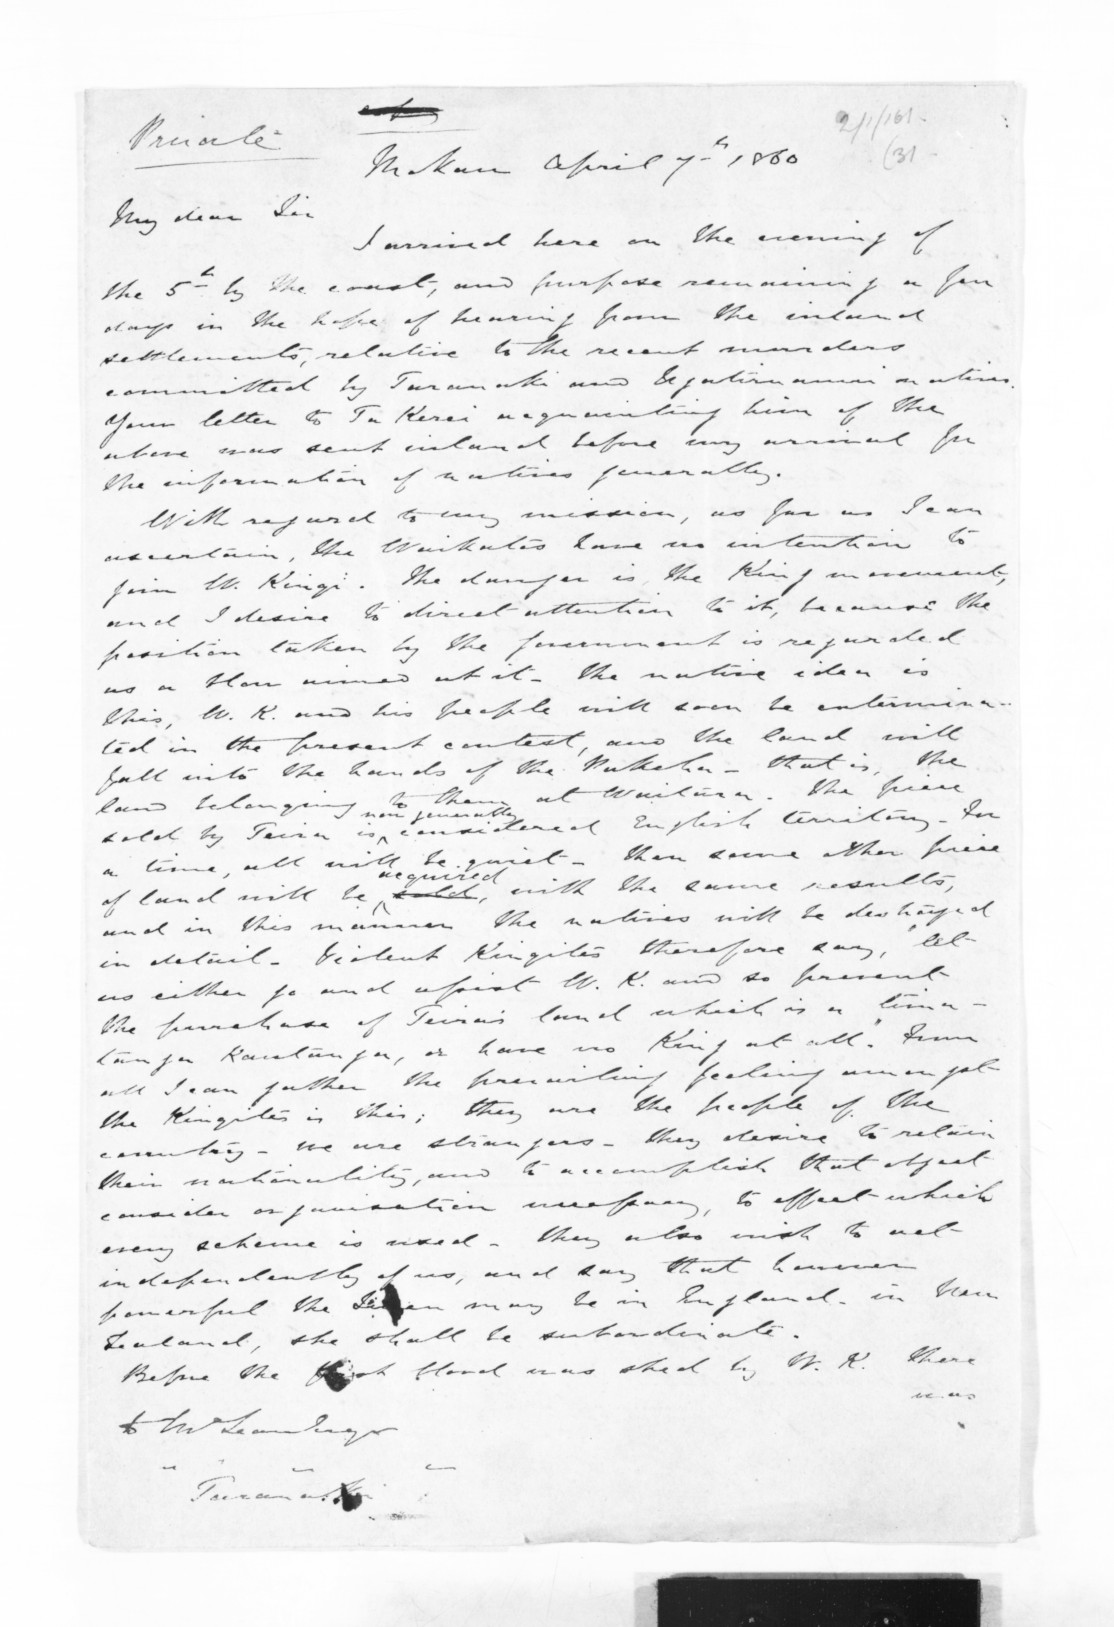 Private
2/1/161
(31
Mokau April 7th, 1860
My dear Sir
I arrived here on the evening of
the 5th by the coast, and purpose remaining a few
days in the hope of hearing from the inland
settlements, relative to the recent murders
committed by Taranaki and Ngatiruanui natives.
Your letter to Ta Kerei acquainting him of the
above was sent inland before my arrival for
the information of natives generally.
With regard to my mission, as far as I can
ascertain, the Waikatos have no intention to
join W. Kingi. The danger is, the King movement,
and I desire to direct attention to it, because the
position taken by the Government is regarded
as a blow aimed at it - the native idea is
this, W. K. and his people will soon be extermina-
ted in the present contest, and the land will
fall into the hands of the Pakeha - that is, the
land belonging to them at Waitara. The piece
sold by Teira is now generally considered English territory - For
a time, all will be quiet - then some other piece
of land will be sold acquired, with the same results,
and in this manner the natives will be destroyed
in detail - Violent Kingites therefore say, "let
us either go and assist W. K. and so prevent
the purchase of Teira's land which is a tima-
tanga kautanga, or have no King at all." From
all I can gather the prevailing feeling amongst
the Kingites is this; they are the people of the
country - we are strangers - they desire to retain
their nationality, and to accomplish that object
consider organisation necessary, to effect which
every scheme is used - they also wish to act
independently of us, and say that however
powerful the Queen may be in England - in New
Zealand, she shall be subordinate.
Before the first blood was shed by W. K. there
was
to McLean Esqr
" " "
Taranaki